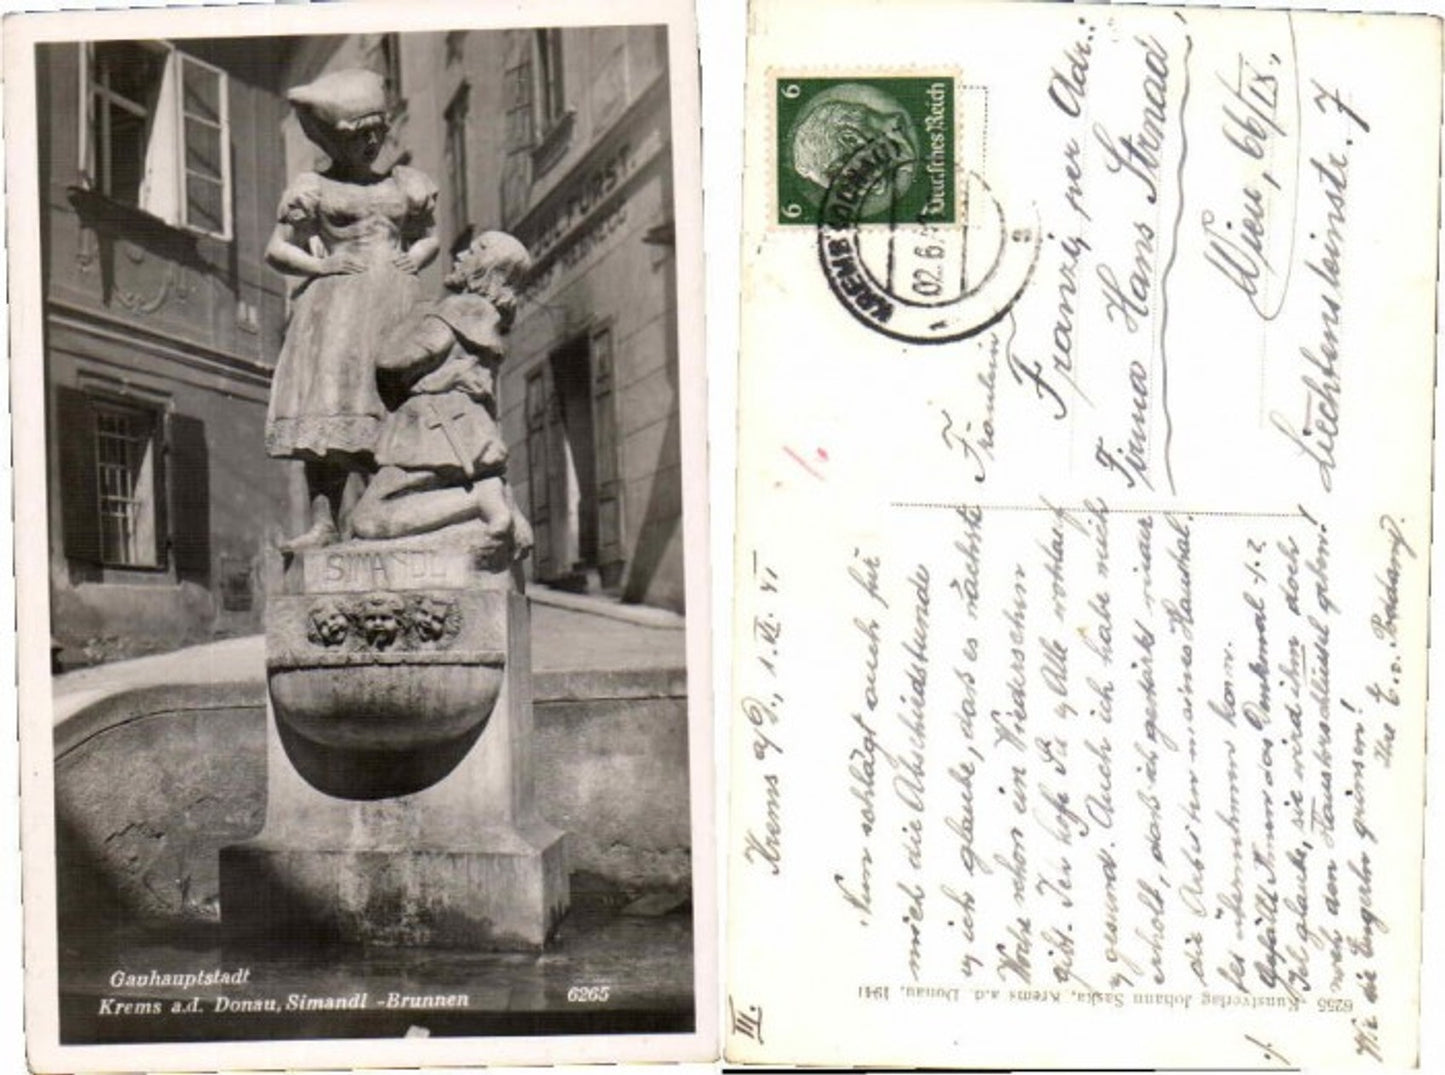 JUL. FÜRST.
SIMANDL
Gauhauptstadt
Krems a.d. Donau, Simandl -Brunnen
6265
6
6
Deutsches Reich
KREMS
02.6.
Krems a/D., 1. VI. 41
III.
Nun schlägt auch für
mich die Abschiedsstunde
u ich glaube, daß es nächste
Woche schon ein Wiedersehen
gibt. Ich hoffe Sie alle wohlauf
u gesund. Auch ich habe mich
erholt, daß ich gestärkt
die Arbeiten meines Haushal-
tes übernehmen kann.
Gefällt Ihnen das Denkmal
Ich glaube, sie wird ihm doch
noch den Haustorschlüssel geben!
Wie die Engerln grinsen!
Ihre
Fräulein
Franzi per Adr.:
Firma Hans Strnad
Wien, 66/IX.,
Liechtensteinstr. 7
6255 Kunstverlag Johann Saska, Krems a.d. Donau, 1941